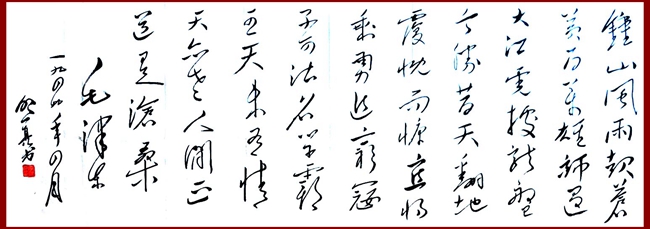 鐘山風雨起蒼
黃百萬雄師過
大江虎踞龍盤
今勝昔天翻地
覆慨而慷宜將
剩勇追窮寇
不可沽名學霸
王天若有情
天亦老人間正
道是滄桑
毛澤東
一九四九年四月